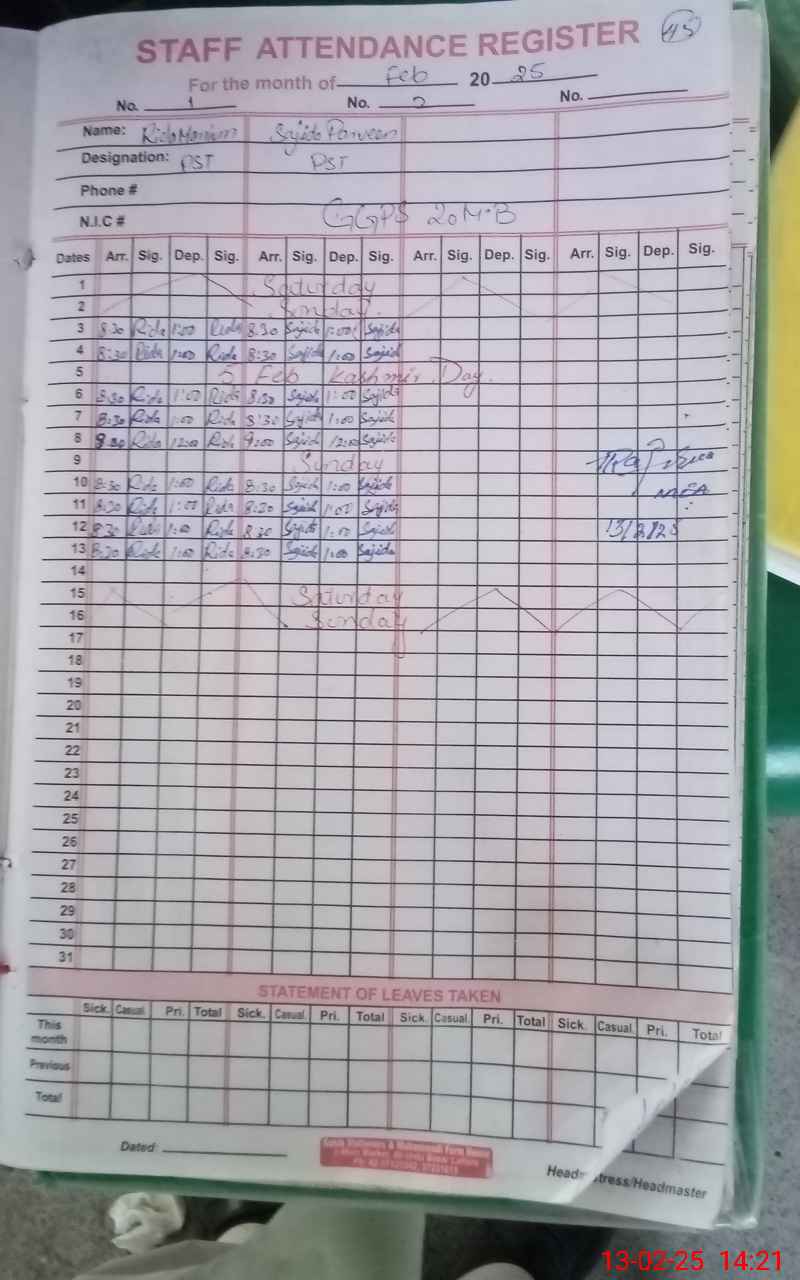 45
STAFF ATTENDANCE REGISTER
For the month of Feb 20 25
No. 1 No. 2 No.
Name: Rida Mariam Sajida Parveen
Designation: PST PST
Phone #
N.I.C # GGPS 20 M.B
Dates Arr. Sig. Dep. Sig. Arr. Sig. Dep. Sig. Arr. Sig. Dep. Sig. Arr. Sig. Dep. Sig.
1 Saturday
2 Sunday.
3 8.30 Rida 1:00 Rida 8.30 Sajida 1:00 Sajida
4 8:30 Rida 1:00 Rida 8:30 Sajida 1:00 Sajida
5 5 Feb Kashmir Day.
6 8:30 Rida 1:00 Rida 8:30 Sajida 1:00 Sajida
7 8:30 Rida 1:00 Rida 8:30 Sajida 1:00 Sajida
8 9.00 Rida 12:00 Rida 9:00 Sajida 12:00 Sajida
9 Sunday
10 8:30 Rida 1:00 Rida 8:30 Sajida 1:00 Sajida
11 8:30 Rida 1:00 Rida 8:30 Sajida 1:00 Sajida
MEA
12 8:30 Rida 1:00 Rida 8:30 Sajida 1:00 Sajida 13/2/25
13 8:30 Rida 1:00 Rida 8:30 Sajida 1:00 Sajida
14
15 Saturday
16 Sunday
17
18
19
20
21
22
23
24
25
26
27
28
29
30
31
STATEMENT OF LEAVES TAKEN
Sick. Casual. Pri. Total Sick. Casual. Pri. Total Sick. Casual. Pri. Total Sick. Casual. Pri. Total
This month
Previous
Total
Dated:
Headmistress/Headmaster
13-02-25 14:21